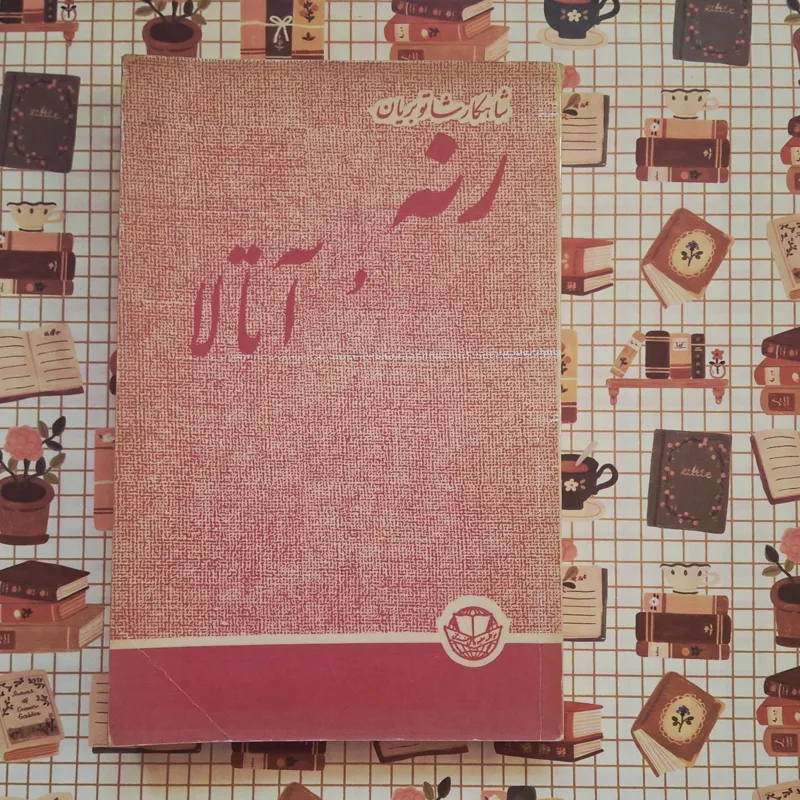 شاهکار شاتوبریان
رنه
و
آتالا